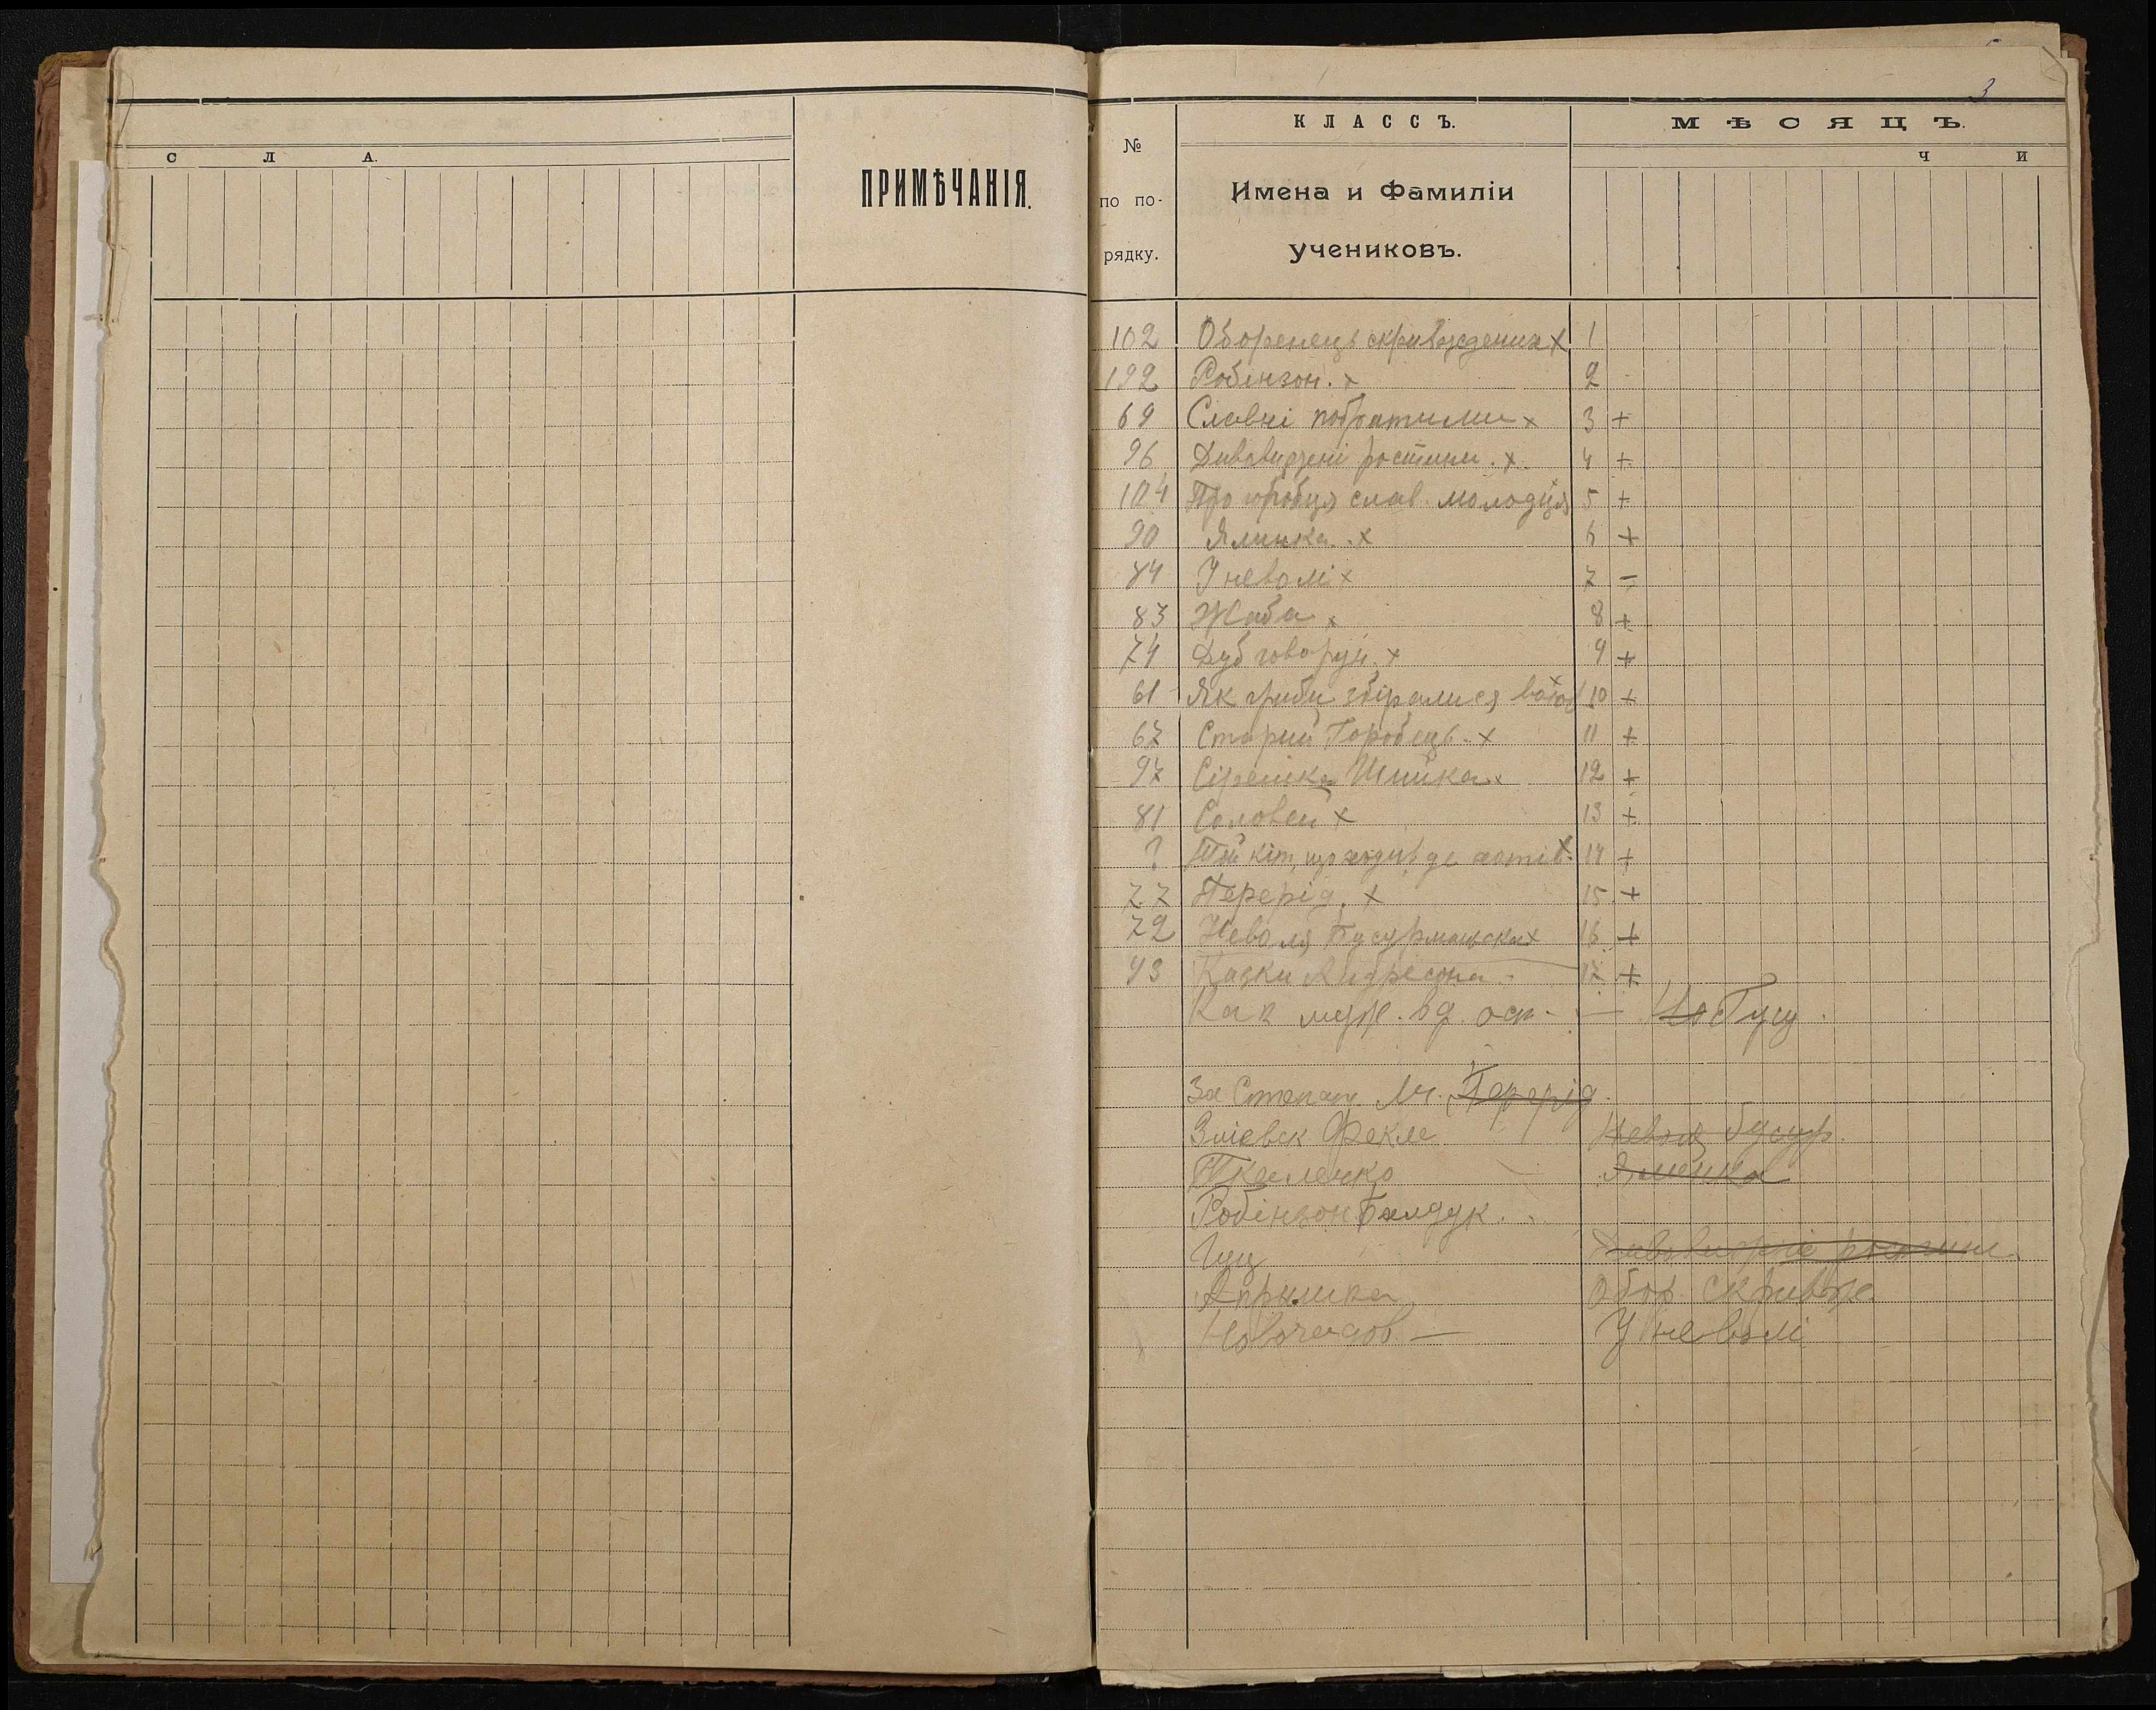 С Л А.
ПРИМѢЧАНІЯ.
3
№ по по- рядку.
КЛАССЪ.
Имена и Фамиліи
учениковъ.
МѢСЯЦЪ.
Ч И
102 Оборенець скривджених x 1
192 Робінзон. x 2
69 Славні побратими x 3 +
96 Дивовижні ростини. x. 4 +
104 Про горобця слав. молодця 5 +
90 Ялинка. x 6 +
84 У неволі x 7 –
83 Жаба x 8 +
74 Дуб говорун. x 9 +
61 Як гриби збіралися воюв 10 +
67 Старий Горобець. x 11 +
97 Сіренька Шийка x 12 +
81 Соловей x 13 +
? Той кіт, що ходив де хотів. x 14 +
77 Перерід. x 15 +
72 Неволя Бусурманська x 16 +
43 Казки Андрєсона - 17 +
Как муж. од. ост. —
За Степан. М. Перерід.
Зміевск Фекле Неволя бусур.
Ткаленко Ялинка
Робінзон Балдук.
Гуц Дивовижні ростини.
Апрышка Обор. скривдже
У неволі